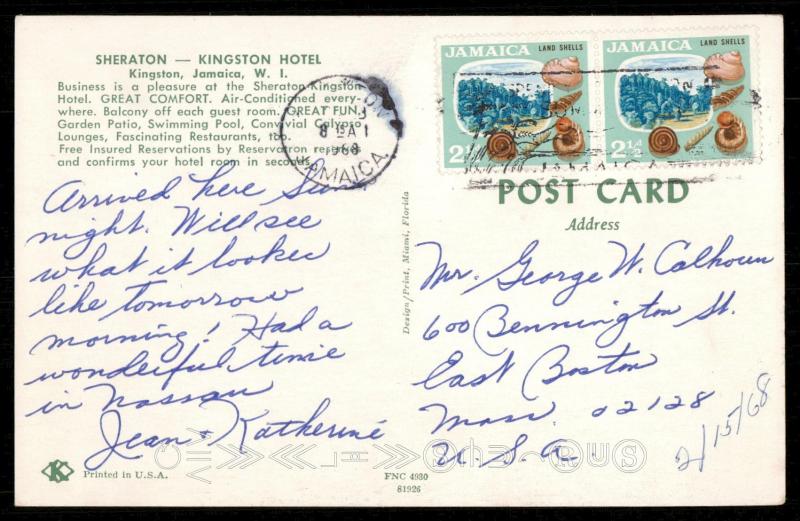 SHERATON — KINGSTON HOTEL
Kingston, Jamaica, W. I.
Business is a pleasure at the Sheraton-Kingston
Hotel. GREAT COMFORT. Air-Conditioned every-
where. Balcony off each guest room. GREAT FUN.
Garden Patio, Swimming Pool, Convivial Calypso
Lounges, Fascinating Restaurants, too.
Free Insured Reservations by Reservatron
and confirms your hotel room in seconds.
Arrived here Sun.
night. Will see
what it looked
like tomorrow
morning! Had a
wonderful time
in Nassau
Jean + Katherine
Printed in U.S.A.
Design/Print, Miami, Florida
FNC 4930
81926
JAMAICA LAND SHELLS
2½d
JAMAICA LAND SHELLS
2½d
1968
JAMAICA
POST CARD
Address
Mr. George W. Calhoun
600 Bennington St.
East Boston
Mass. 02128
U.S.A.
2/15/68